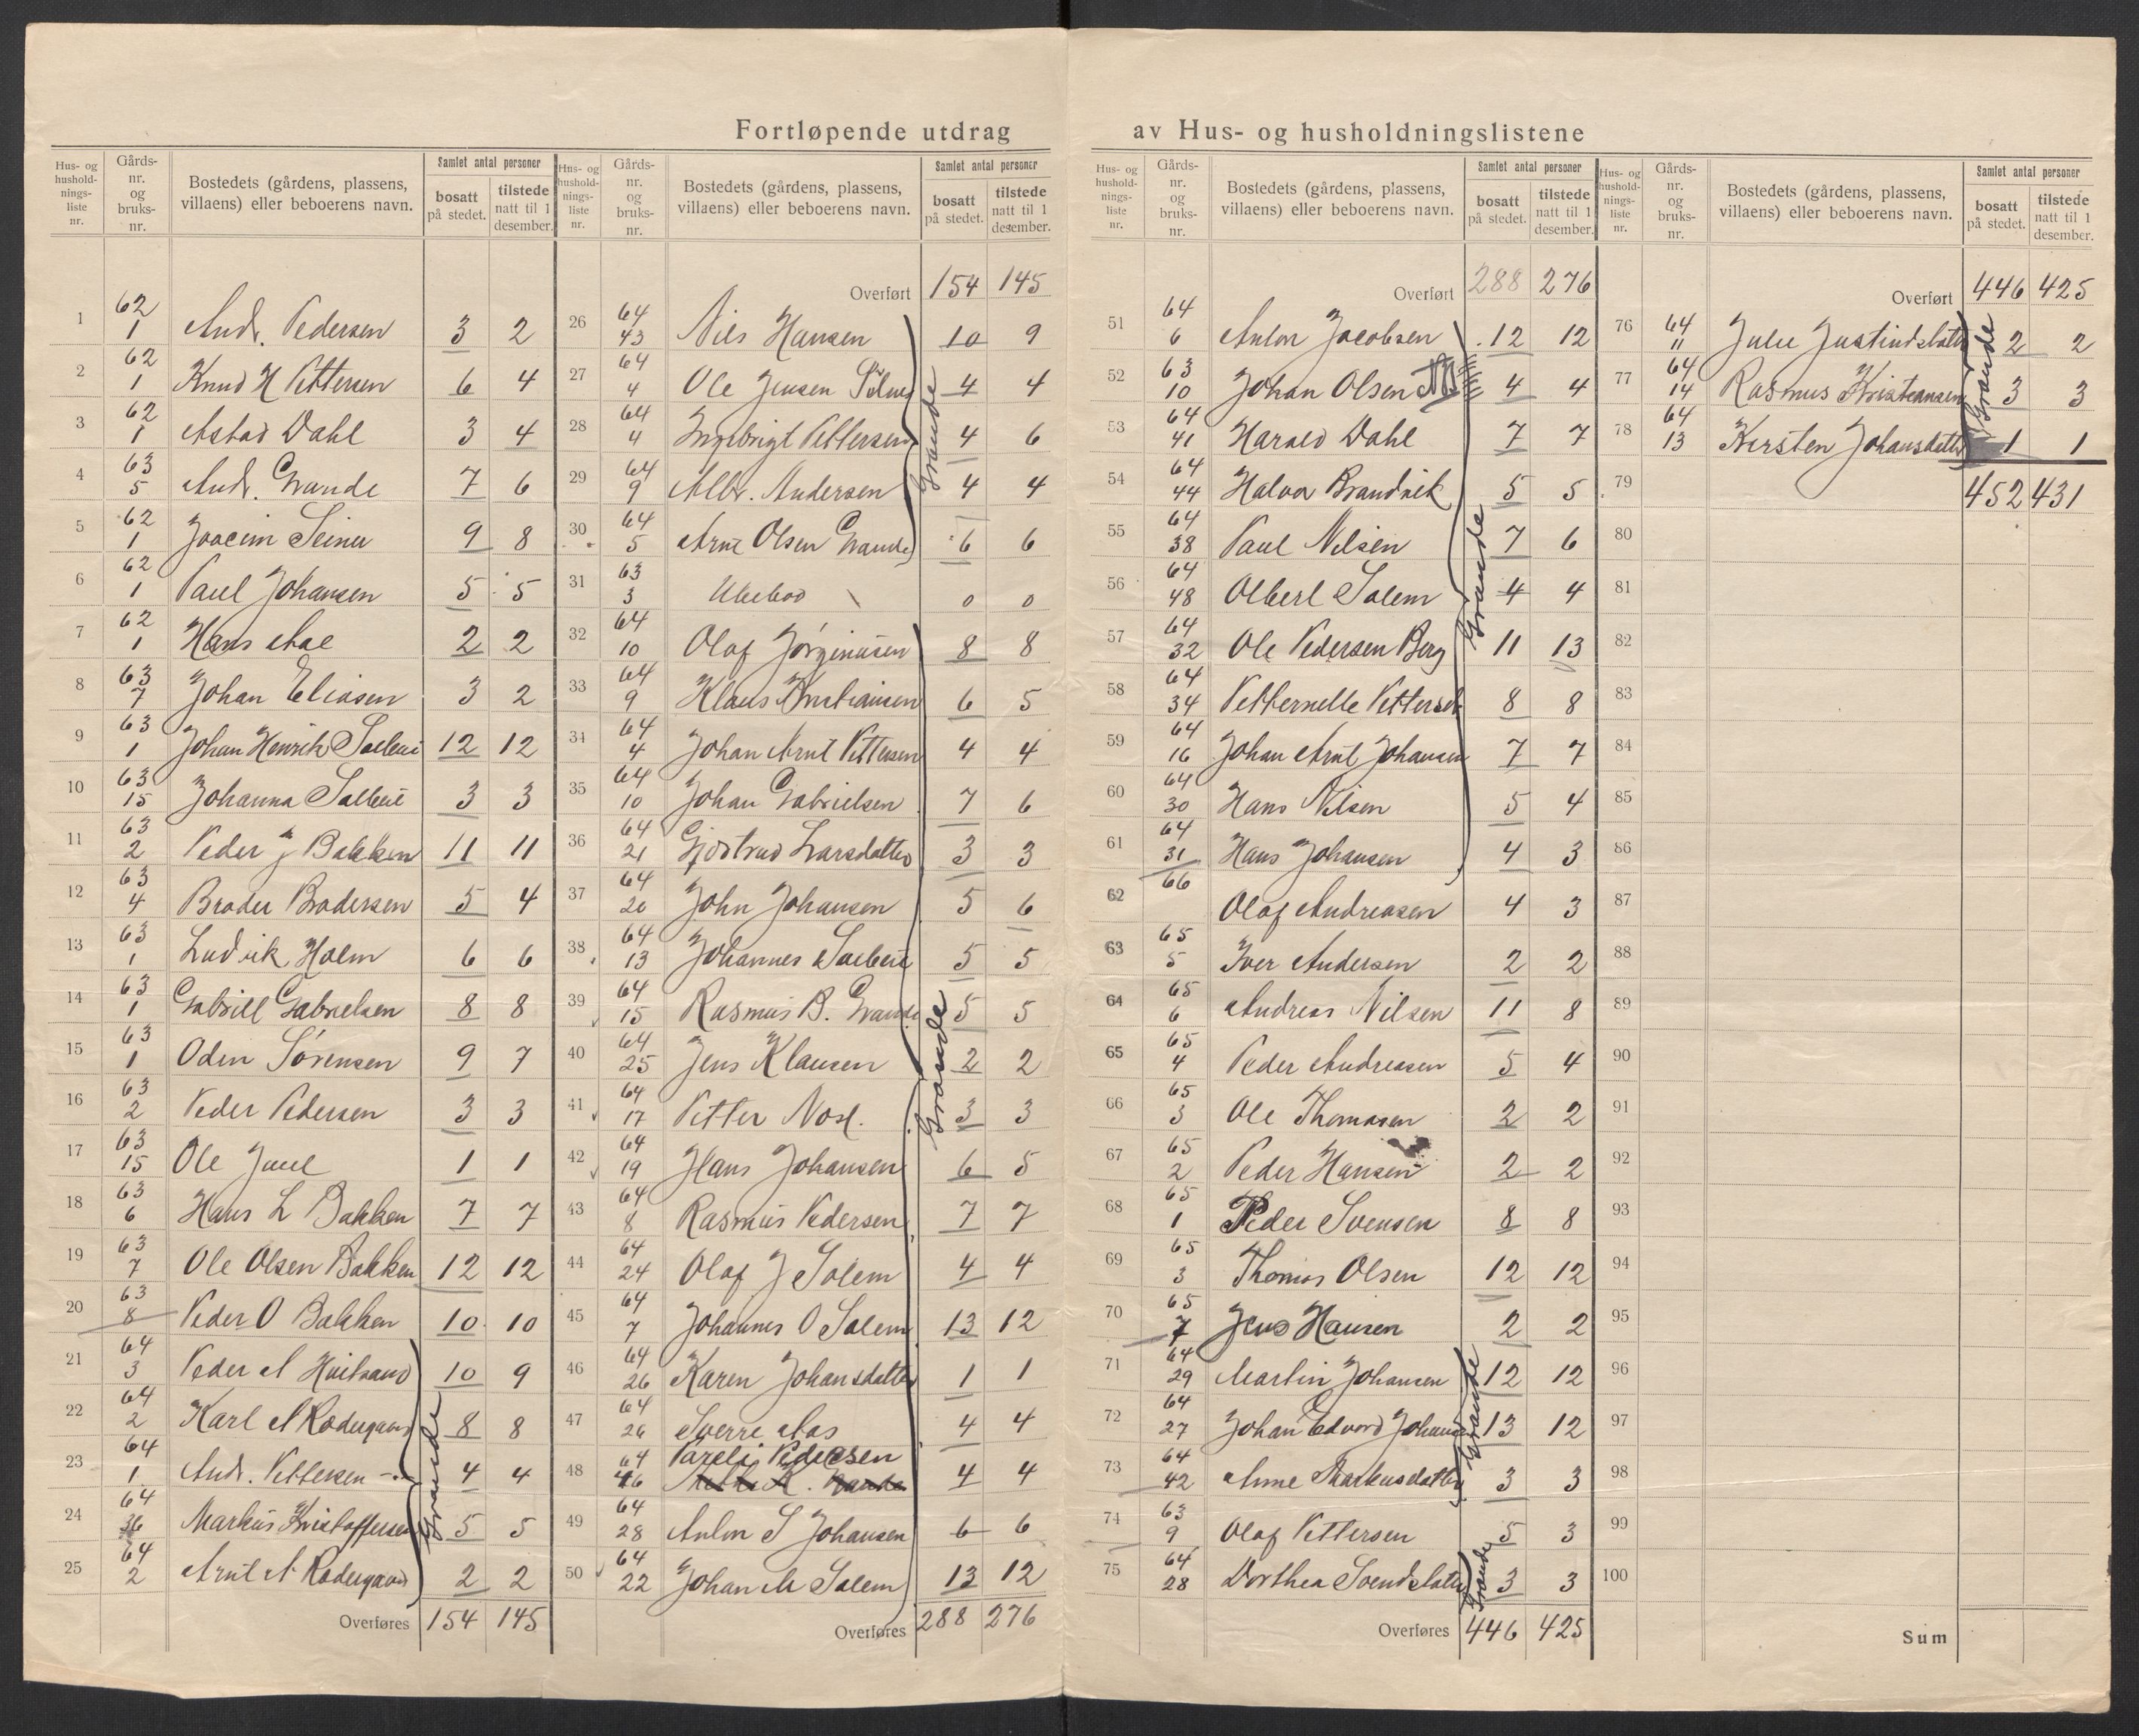 Fortløpende utdrag av Hus- og husholdningslistene
Hus- og husholdningsliste nr. Gårdsnr. og bruksnr. Bostedets (gårdens, plassens, villaens) eller beboerens navn. Samlet antal personer bosatt på stedet. tilstede natt til 1 desember.
1 62 1 Andr. Pedersen 3 2
2 62 1 Knud H Pettersen 6 4
3 62 1 Astad Dahl 3 4
4 63 5 Andr. Grande 7 6
5 62 1 Joacim 9 8
6 62 1 Paul Johansen 5 5
7 62 1 Hans 2 2
8 63 7 Johan Eliasen 3 2
9 63 1 Johan Henrik 12 12
10 63 15 Johanna 3 3
11 63 2 Peder J Bakken 11 11
12 63 4 Broder Brodersen 5 4
13 63 1 Ludvik Holm 6 6
14 63 1 Gabriel Gabrielsen 8 8
15 63 1 Oden Sørensen 9 7
16 63 2 Peder Pedersen 3 3
17 63 15 Ole Juul 1 1
18 63 6 Hans L Bakken 7 7
19 63 7 Ole Olsen Bakken 12 12
20 63 8 Peder O Bakken 10 10
21 64 3 Peder A Hvitsand 10 9
22 64 2 Karl A Rødergaard 8 8
23 64 1 Andr. Pettersen 4 4
24 64 36 Markus Kristoffersen 5 5
25 64 2 Arnt A Rødergaard 2 2
Grande
Overføres 154 145
Hus- og husholdningsliste nr. Gårdsnr. og bruksnr. Bostedets (gårdens, plassens, villaens) eller beboerens navn. Samlet antal personer bosatt på stedet. tilstede natt til 1 desember.
Overført 154 145
26 64 43 Nils Hansen 10 9
27 64 4 Ole Jensen 4 4
28 64 4 Ingebrigt Pettersen 4 6
29 64 9 Albr. Andersen 4 4
Grande
30 64 5 Arnt Olsen Grande 6 6
31 63 3 Ubebod 0 0
32 64 10 Olaf Jørginusen 8 8
33 64 9 Klaus Kristiansen 6 5
34 64 4 Johan Arnt Pettersen 4 4
35 64 10 Johan Gabrielsen 7 6
36 64 21 Gjertrud Larsdatter 3 3
37 64 20 John Johansen 5 6
38 64 13 Johannes 5 5
39 64 15 Rasmus B. Grande 5 5
40 64 25 Jens Klausen 2 2
41 64 17 Petter 3 3
Grande
42 64 19 Hans Johansen 6 5
43 64 8 Rasmus Pedersen 7 7
44 64 24 Olaf J Solem 4 4
45 64 7 Johannes O Solem 13 12
46 64 26 Karen Johansdatter 1 1
47 64 26 Sverre Aas 4 4
48 64 46 Pareli Pedersen 4 4
49 64 28 Anton S Johansen 6 6
50 64 22 Johan M Solem 13 12
Overføres 288 276
Hus- og husholdningsliste nr. Gårdsnr. og bruksnr. Bostedets (gårdens, plassens, villaens) eller beboerens navn. Samlet antal personer bosatt på stedet. tilstede natt til 1 desember.
Overført 288 276
51 64 6 Anton Jacobsen 12 12
52 63 10 Johan Olsen 4 4
53 64 41 Harald Dahl 7 7
54 64 44 Halvor Brandvik 5 5
55 64 38 Paul Nilsen 7 6
56 64 48 Olbert Solem 4 4
Grande
57 64 32 Ole Pedersen Berg 11 13
58 64 34 Petternelle Pettersen 8 8
59 64 16 Johan Arnt Johansen 7 7
60 64 30 Hans Nilsen 5 4
61 64 31 Hans Johansen 4 3
62 66 Olaf Andreasen 4 3
63 65 5 Iver Andersen 2 2
64 65 6 Andreas Nilsen 11 8
65 65 4 Peder Andreasen 5 4
66 65 3 Ole Thomasen 2 2
67 65 2 Peder Hansen 2 2
68 65 1 Peder Svensen 8 8
69 65 3 Thomas Olsen 12 12
70 65 7 Jens Hansen 2 2
71 64 29 Martin Johansen 12 12
72 64 27 Johan Edvard Johansen 13 12
Grande
73 64 42 Anne Markusdatter 3 3
74 63 9 Olaf Pettersen 5 3
75 64 28 Dorthea Svendsdatter 3 3
Grande
Overføres 446 425
Hus- og husholdningsliste nr. Gårdsnr. og bruksnr. Bostedets (gårdens, plassens, villaens) eller beboerens navn. Samlet antal personer bosatt på stedet. tilstede natt til 1 desember.
Overført 446 425
76 64 11 Julie Justindsdatter 2 2
77 64 14 Rasmus Kristiansen 3 3
Grande
78 64 13 Kirsten Johansdatter 1 1
79 452 431
80
81
82
83
84
85
86
87
88
89
90
91
92
93
94
95
96
97
98
99
100
Sum